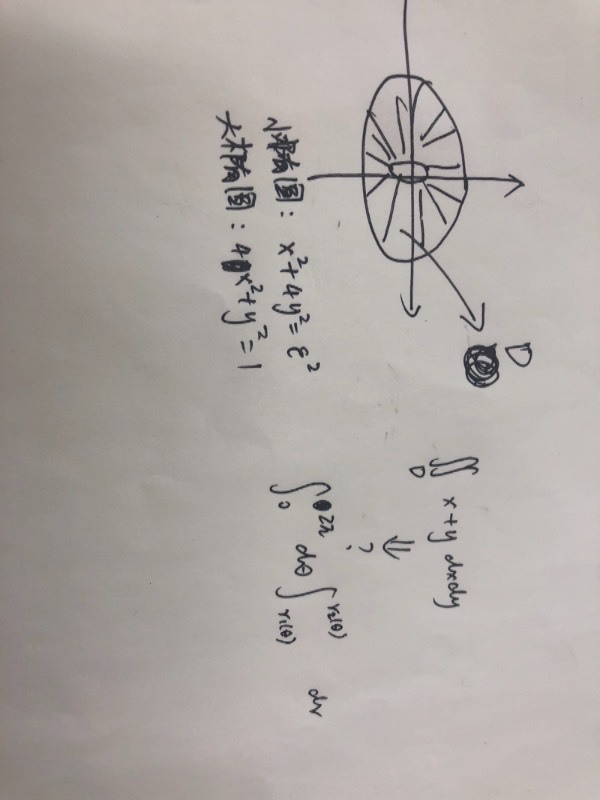 D
小椭圆：x²+4y²=ε²
大椭圆：4x²+y²=1
∬_D x+y dxdy
⇓ ?
∫_0^{2π} dθ ∫_{r₁(θ)}^{r₂(θ)} dr